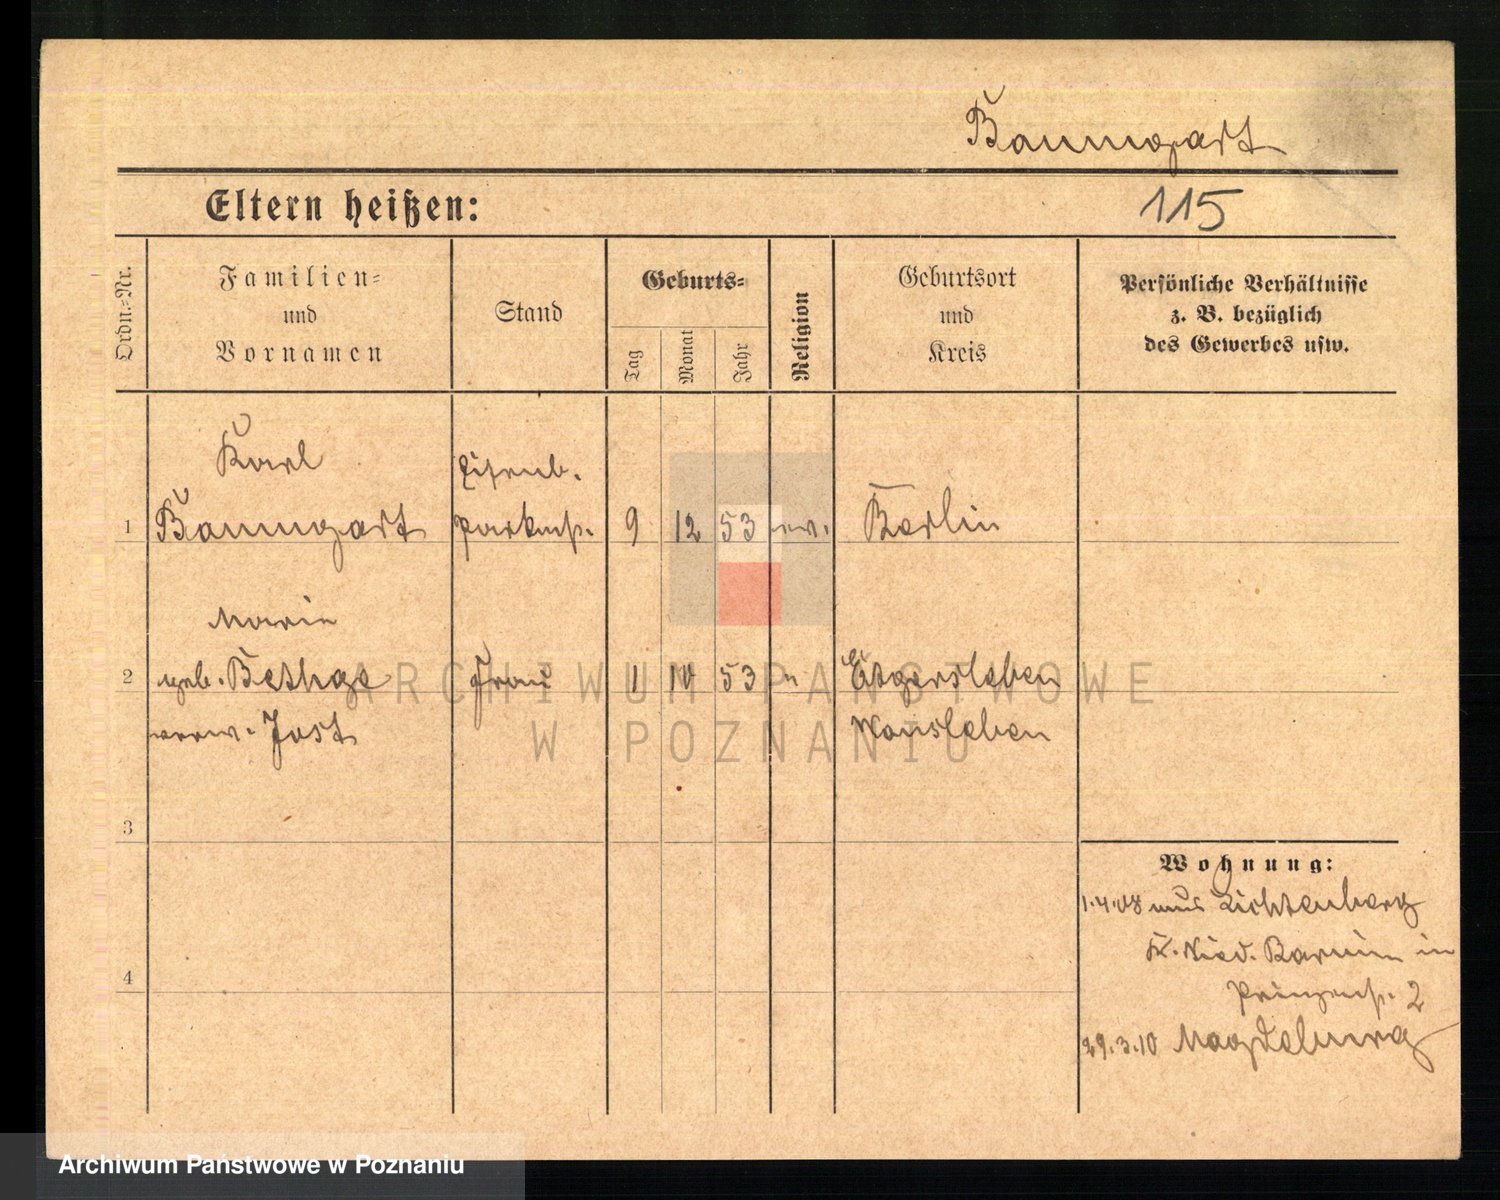 Baumgart
Eltern heißen:
115
Ordn.-Nr.
Familien-
und
Vornamen
Stand
Geburts-
Tag
Monat
Jahr
Religion
Geburtsort
und
Kreis
Persönliche Verhältnisse
z. B. bezüglich
des Gewerbes usw.
Karl
Eisenb.
1 Baumgart 9 12 53 ev. Berlin
Marie
2 geb. Bethge Frau 1 10 53 " Etgersleben
verw. Jost Wansleben
3
4
Wohnung:
1.4.08 aus Lichtenberg
Kr. Nied. Barnim in
Prinzenstr. 2
29.3.10 Magdeburg
ARCHIWUM PAŃSTWOWE
W POZNANIU
Archiwum Państwowe w Poznaniu